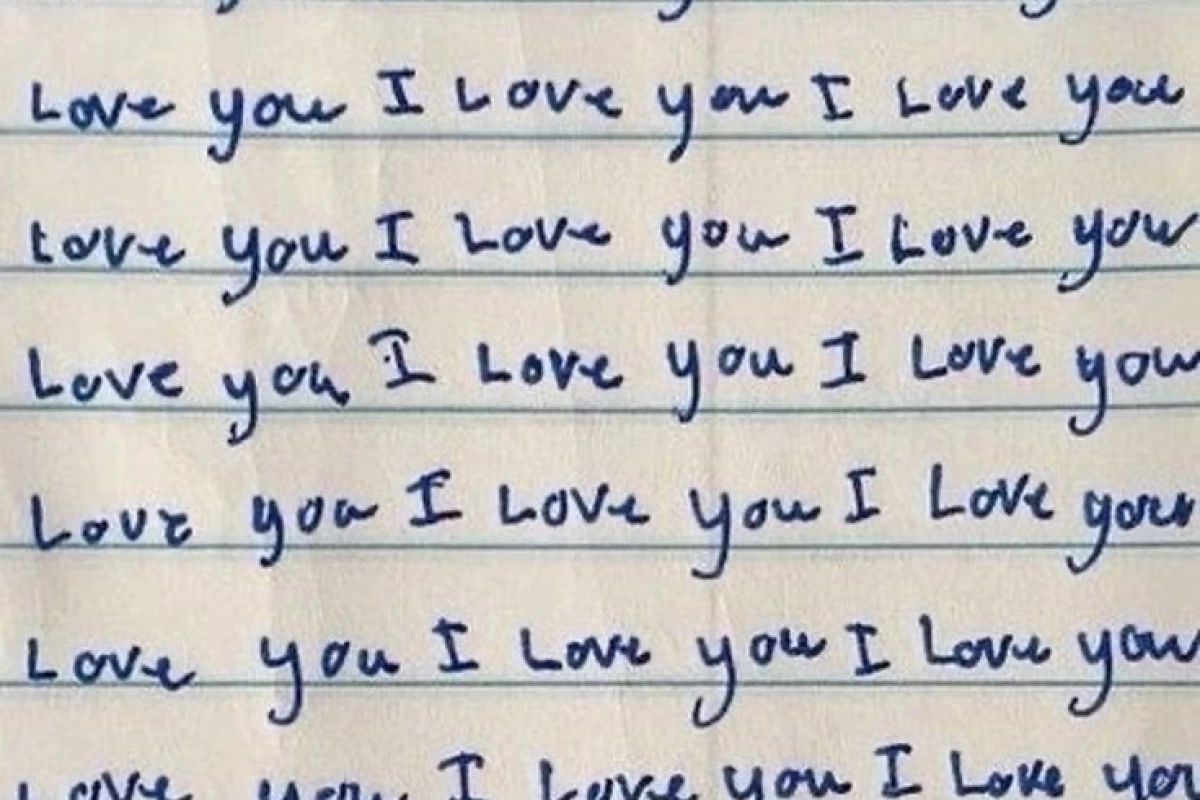 Love you I Love you I Love you
Love you I Love you I Love you
Love you I Love you I Love you
Love you I Love you I Love you
Love you I Love you I Love you
Love you I Love you I Love you